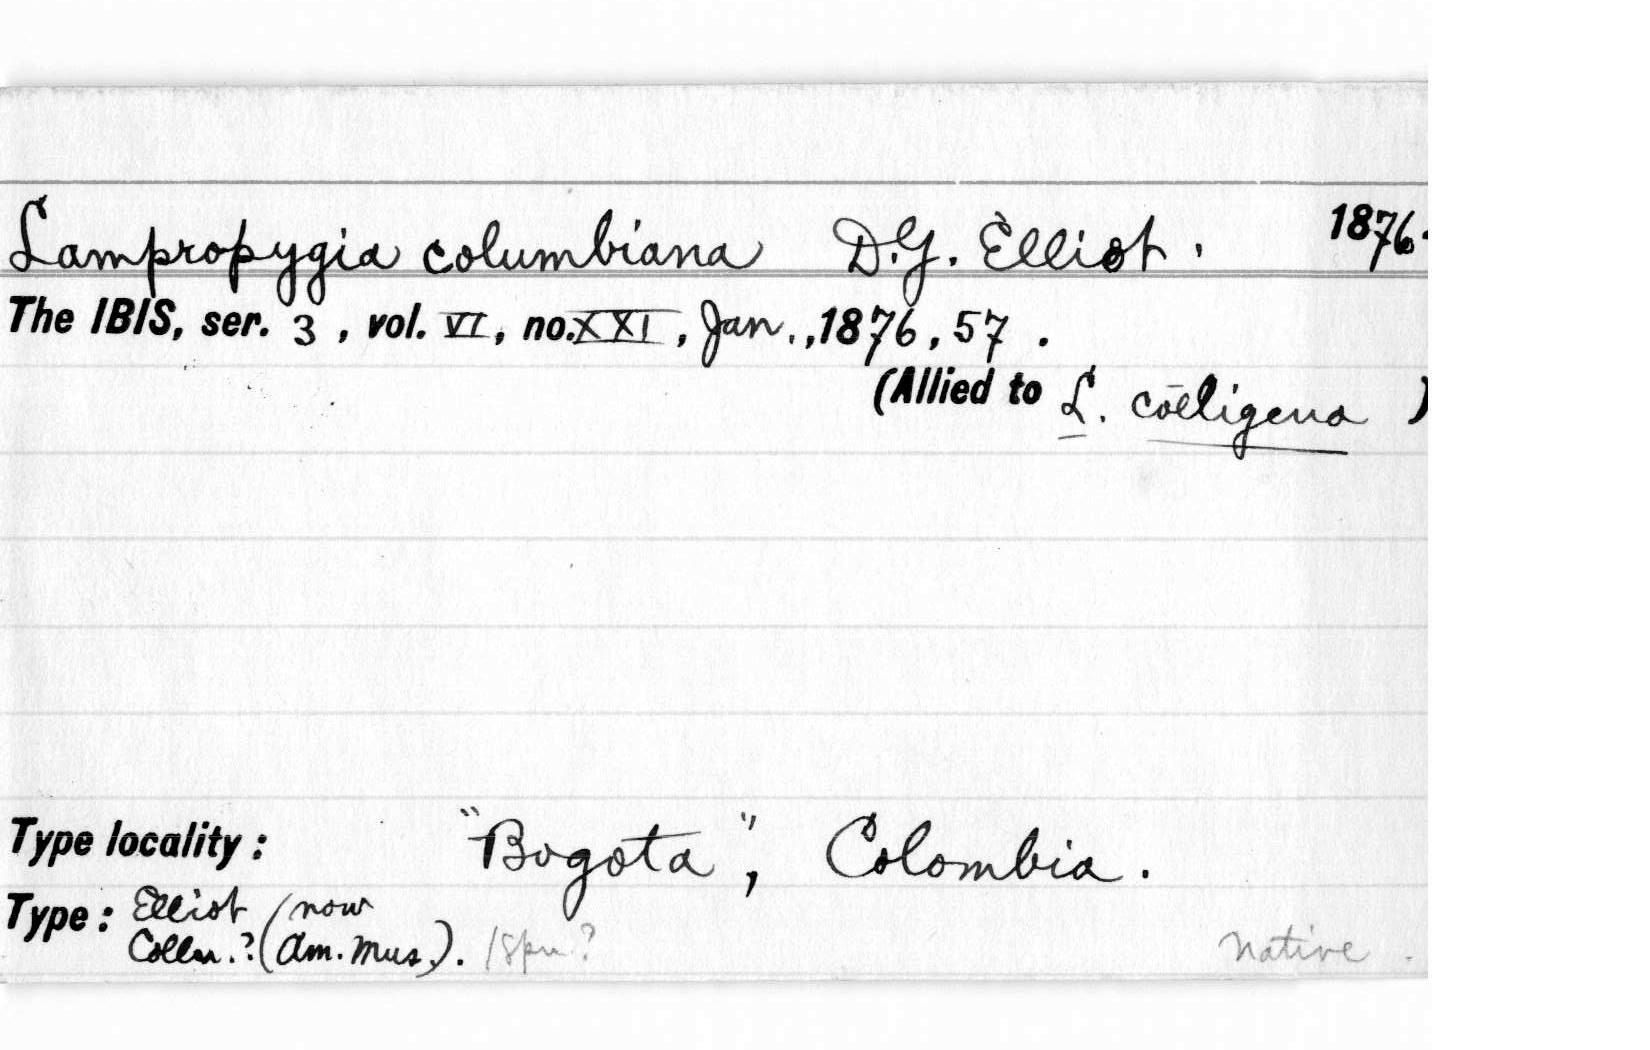 Lampropygia columbiana D.G. Elliot. 1876.
The IBIS, ser. 3, vol. VI, no. XXI, Jan., 1876, 57.
(Allied to L. cœligena )
Type locality: "Bogota", Colombia.
Type: Elliot (now
Colln.? (Am. Mus.). 1 spn?
native.